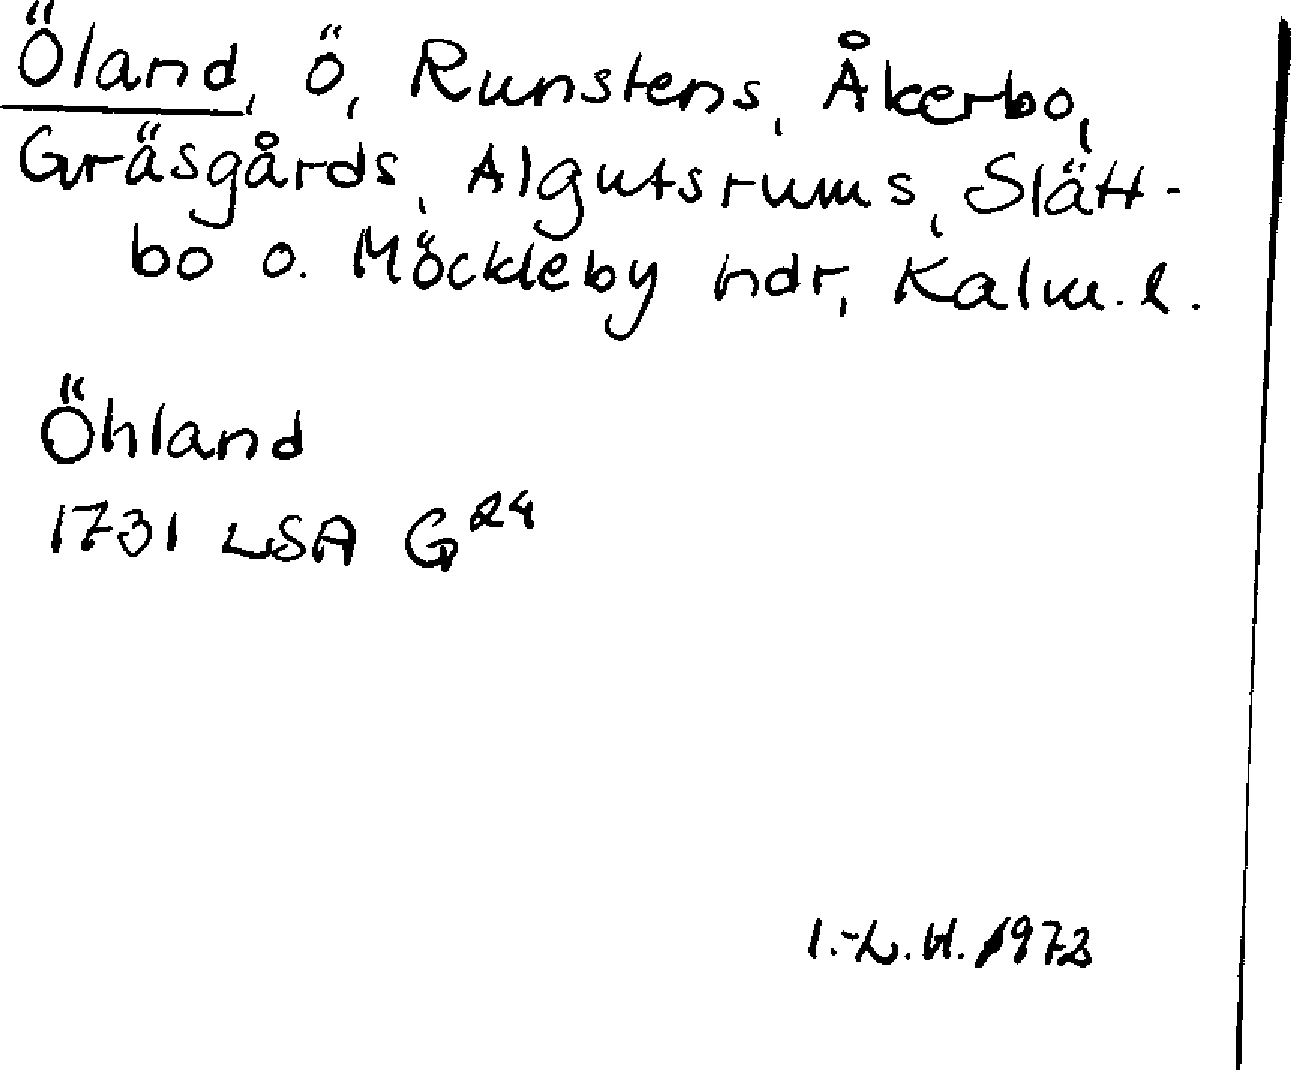 Öland, ö, Runstens, Åkerbo,
Gräsgårds, Algutsrums, Slätt-
bo o. Möckleby hdr, Kalm. l.
Öhland
1731 LSA G24
I.-L. H. 1973